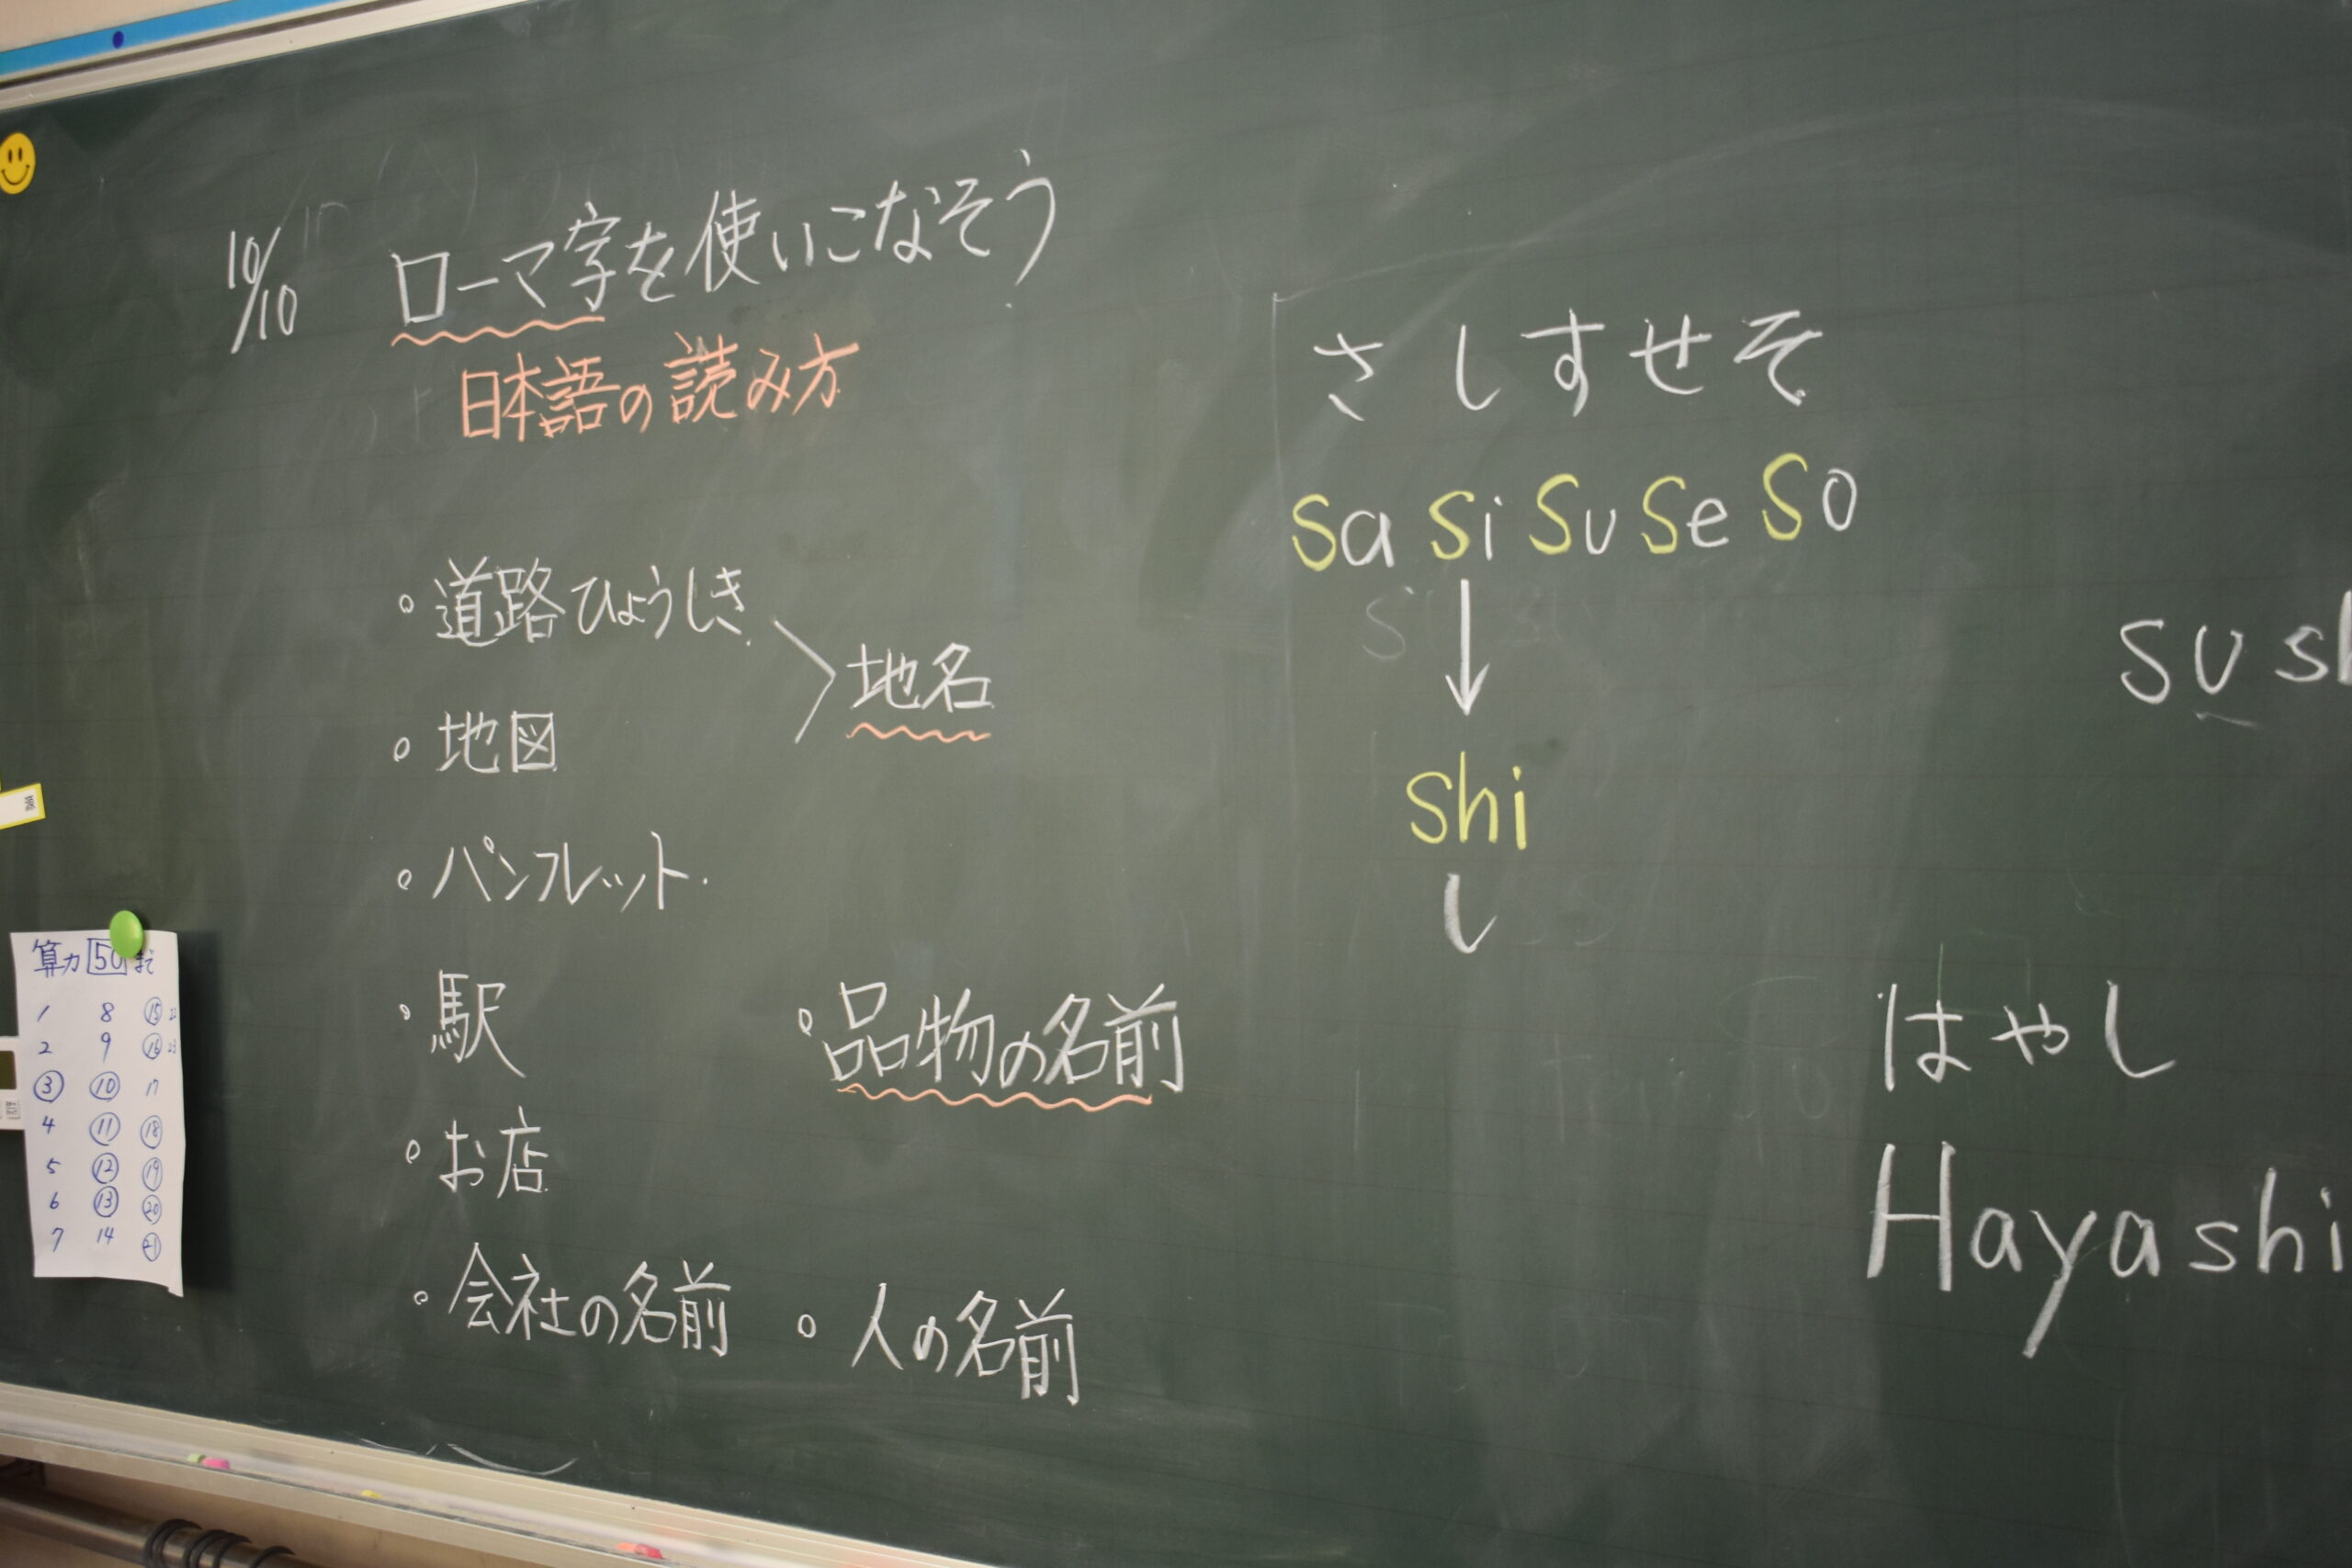 10/10 ローマ字を使いこなそう
日本語の読み方
。道路ひょうしき
。地図
地名
。パンフレット
。駅
。お店
。会社の名前
。品物の名前
。人の名前
さしすせそ
sa si su se so
↓
shi
し
su sh
はやし
Hayashi
算力 50 まで
1 8 15 22
2 9 16 23
3 10 17
4 11 18
5 12 19
6 13 20
7 14 21